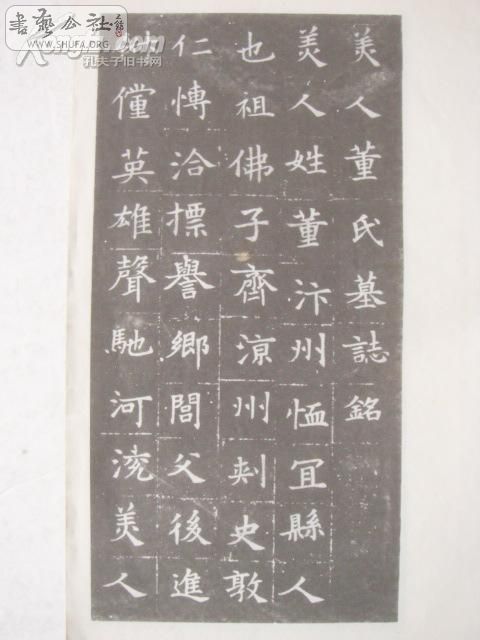 書藝公社
WWW.SHUFA.ORG
孔夫子旧书网
美人董氏墓誌銘
美人姓董汴州恤冝縣人
也祖佛子齊涼州刺史敦
仁博洽摽譽鄉閭父後進
儻英雄聲馳河渷美人